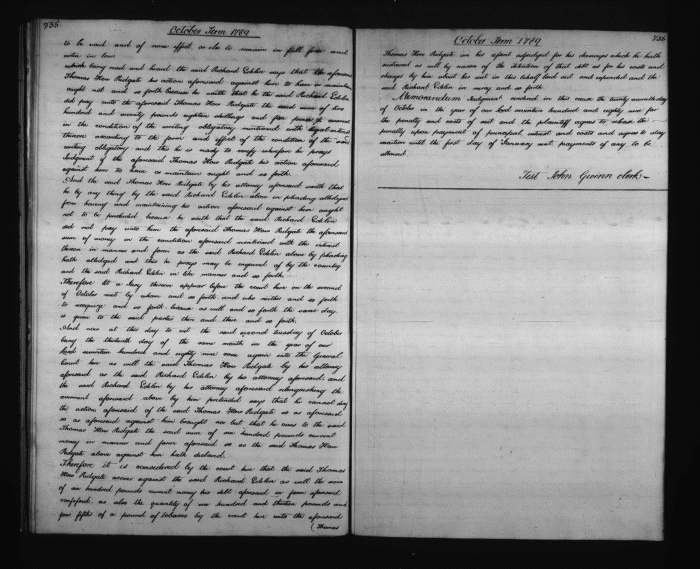 735
October Term 1789
to be void and of none effect or else to remain in full force and
virtue in law
which being read and heard the said Richard Edelin says that the aforesaid
Thomas How Ridgate his action aforesaid against him to have or maintain
ought not and so forth because he saith that he the said Richard Edelin
did pay unto the aforesaid Thomas How Ridgate the said sum of
hundred and twenty pounds eighteen shillings and five pence
in the condition of the writing obligatory mentioned with legal interest
thereon according to the form and effect of the condition of the said
writing obligatory and this he is ready to verify wherefore he prays
Judgment if the aforesaid Thomas How Ridgate his action aforesaid
against him to have or maintain ought and so forth
And the said Thomas How Ridgate by his attorney aforesaid saith that
he by any thing by the said Richard Edelin above in pleading alledged
from having and maintaining his action aforesaid against him ought
not to be precluded because he saith that the said Richard Edelin
did not pay unto him the aforesaid Thomas How Ridgate the aforesaid
sum of money in the condition aforesaid mentioned with the interest
thereon in manner and form as the said Richard Edelin above by pleading
hath alledged and this he prays may be enquired of by the country
and the said Richard Edelin in like manner and so forth
Therefore let a Jury thereon appear before the court here on the second
of October next by whom and so forth and who neither and so forth
to recognize and so forth because as well and so forth the same day
is given to the said parties then and there and so forth
And now at this day to wit the said second tuesday of October
being the thirteenth day of the same month in the year of our
Lord seventeen hundred and eighty nine come again into the General
Court here as well the said Thomas How Ridgate by his attorney
aforesaid as the said Richard Edelin by his attorney aforesaid and
the said Richard Edelin by his attorney aforesaid relinquishing the
averment aforesaid above by him pretended says that he cannot deny
the action aforesaid of the said Thomas How Ridgate so as aforesaid
is as aforesaid against him brought nor but that he owes to the said
Thomas How Ridgate the said sum of six hundred pounds current
money in manner and form aforesaid so as the said Thomas How
Ridgate above against him hath declared
Therefore it is considered by the court here that the said Thomas
How Ridgate recover against the said Richard Edelin as well the sum
of six hundred pounds current money his debt aforesaid in form aforesaid
confessed as also the quantity of six hundred and thirteen pounds and
four fifths of a pound of tobacco by the court here unto the aforesaid
(Thomas
October Term 1789
736
Thomas How Ridgate in his assent adjudged for his damages which he hath
sustained as well by reason of the detention of that debt as for his costs and
charges by him about his suit in this behalf laid out and expended and the
said Richard Edelin in mercy and so forth
Memorandum Judgment rendered in this cause the twenty seventh day
of October in the year of our Lord seventeen hundred and eighty nine for
the penalty and costs of suit and the plaintiff agrees to release the
penalty upon payment of principal interest and costs and agrees to stay
execution until the first day of January next payments if any to be
allowed
Test John Gwinn clerk